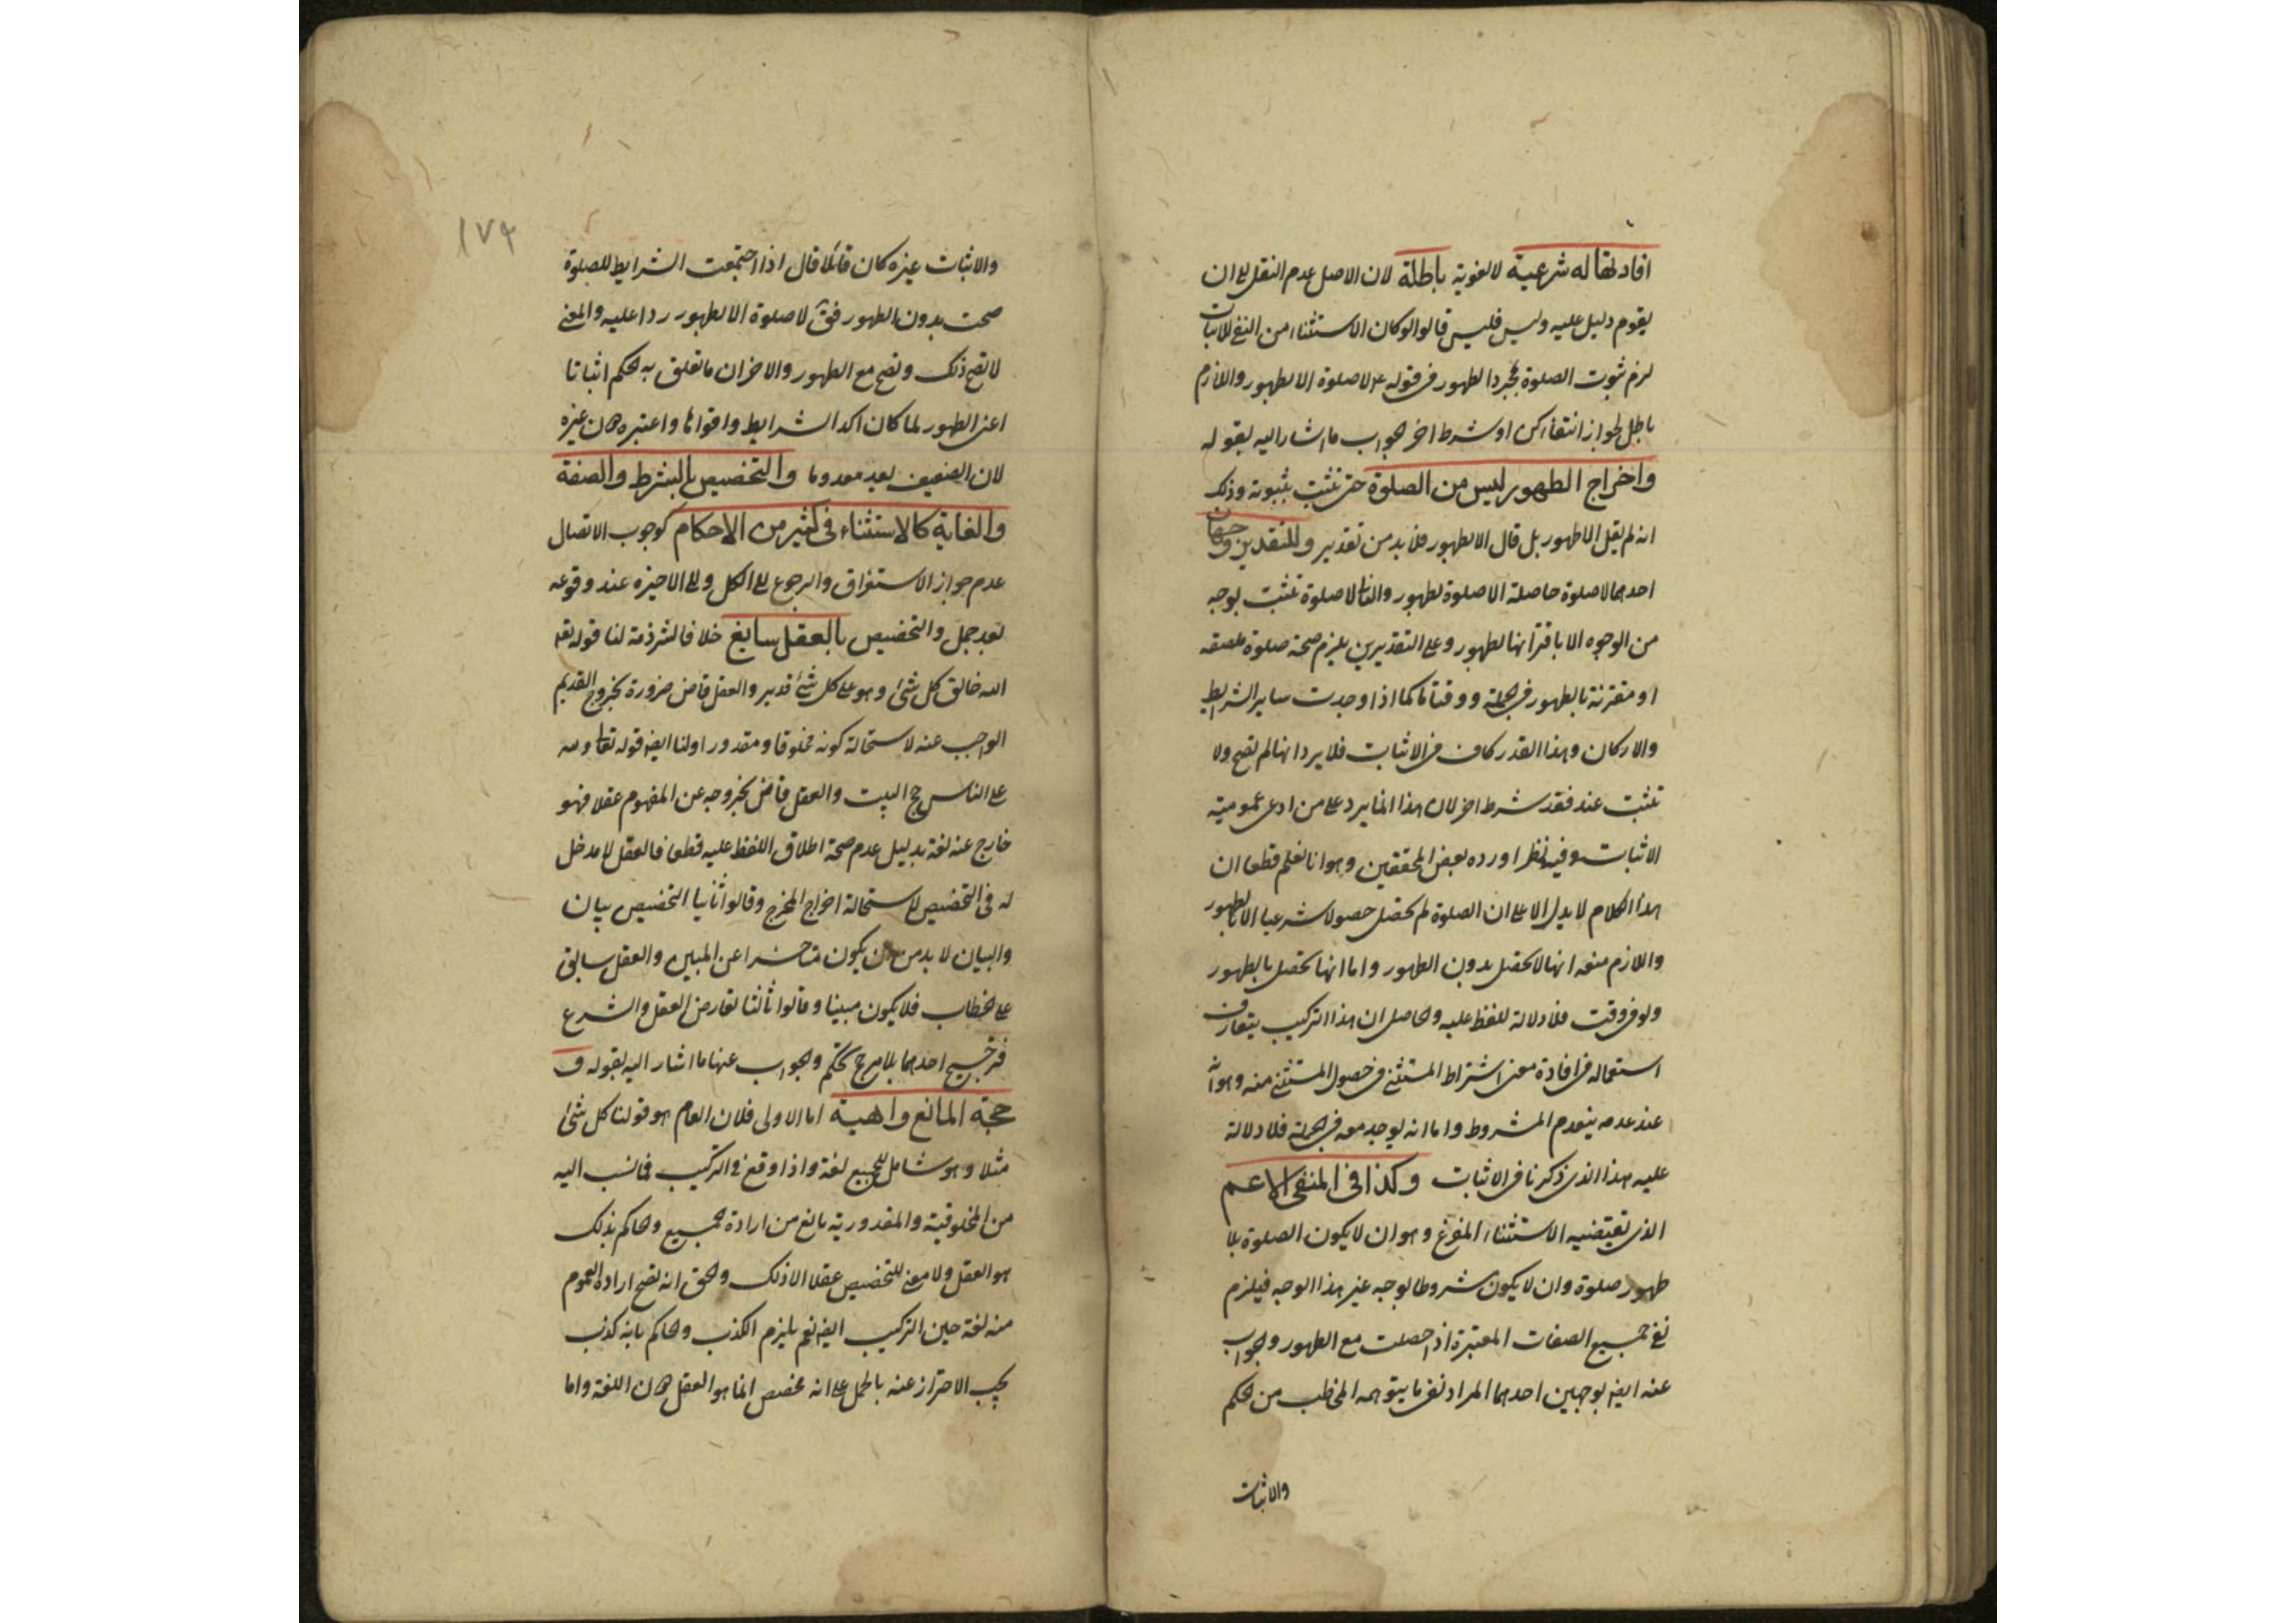 افادتها له شرعية لا لغوية باطلة لان الاصل عدم النقل الى ان
يقوم دليل عليه وليس فليس قالوا لو كان الاستثناء من النفى للاثبات
لزم ثبوت الصلوة بمجرد الطهور فى قوله عم لا صلوة الا بطهور واللازم
باطل لجواز انتفاء ركن او شرط اخر الجواب ما اشار اليه بقوله
واخراج الطهور ليس من الصلوة حتى تثبت بثبوته وذلك
انه لم يقل الا طهور بل قال الا بطهور فلا بد من تقدير وللتقدير وجهان
احدهما لا صلوة حاصلة الا صلوة بطهور والثانى لا صلوة تثبت بوجه
من الوجوه الا باقترانها بطهور وعلى التقديرين يلزم صحة صلوة ملصقه
او مقترنة بالطهور فى الجملة ووقتا ما كما اذا وجدت ساير الشرايط
والاركان وهذا القدر كاف فى الاثبات فلا يرد انها لم تصح ولا
تثبت عند فقد شرط اخر لان هذا انما يرد على من ادعى عمومية
الاثبات وفيه نظر اورده بعض المحققين وهو انا نعلم قطعا ان
هذا الكلام لا يدل الا على ان الصلوة لم تحصل حصولا شرعيا الا بالطهور
واللازم منه انها لا تحصل بدون الطهور واما انها تحصل بالطهور
ولو فى وقت فلا دلالة للفظ عليه والحاصل ان هذا التركيب يتعارف
استعماله فى افادة معنى اشتراط المستثنى فى حصول المستثنى منه وهو انه
عند عدمه ينعدم المشروط واما انه يوجد معه فى الجملة فلا دلالة
عليه هذا الذى ذكرنا فى الاثبات وكذا فى المنفى الاعم
الذى تقتضيه الاستثناء المفرغ وهو ان لا يكون الصلوة بلا
طهور صلوة وان لا يكون مشروطا بوجه غير هذا الوجه فيلزم
نفى جميع الصفات المعتبرة اذا حصلت مع الطهور والجواب
عنه ايضا بوجهين احدهما المراد نفى ما يتوهمه المخاطب من الحكم
والاثبات
١٧٩
والاثبات غيره كان قائلا قال اذا اجتمعت الشرايط للصلوة
صحت بدون الطهور فق لا صلوة الا بطهور ردا عليه والمعنى
لا تصح ذلك وتصح مع الطهور والاخر ان ما تعلق به الحكم اثباتا
اعنى الطهور لما كان اكد الشرايط واقواها واعتبره كان غيره
لان الضعيف يعد معدوما والتخصيص بالشرط والصفة
والغاية كالاستثناء فى كثير من الاحكام كوجوب الاتصال
عدم جواز الاستغراق والرجوع الى الكل والى الاخيره عند وقوعه
بعد جمل والتخصيص بالعقل سايغ خلافا لشرذمة لنا قوله تعه
الله خالق كل شئ وهو على كل شئ قدير والعقل قاض ضرورة بخروج القديم
الواجب عنه لاستحالة كونه مخلوقا ومقدورا ولنا ايضا قوله تعالى ولله
على الناس حج البيت والعقل قاض بخروجه عن المفهوم عقلا فهو
خارج عنه لغة بدليل عدم صحة اطلاق اللفظ عليه قطعا فالعقل لا مدخل
له فى التخصيص لاستحالة اخراج المخرج وقالوا ثانيا التخصيص بيان
والبيان لا بد من ان يكون متاخرا عن المبين والعقل سابق
على الخطاب فلا يكون مبينا وقالوا ثالثا تعارض العقل والشرع
فترجيح احدهما بلا مرجح تحكم والجواب عنها ما اشار اليه بقوله و
حجة المانع واهية اما الاولى فلان العام هو قولنا كل شئ
مثلا وهو شامل للجميع لغة واذا وقع فى التركيب فما نسب اليه
من المخلوقية والمقدورية مانع من ارادة الجميع والحاكم بذلك
هو العقل ولا معنى للتخصيص عقلا الا ذلك والحق انه تصح ارادة العموم
منه لغة حين التركيب ايضا نعم يلزم الكذب والحاكم بانه كذب
يجب الاحتراز عنه بالحمل على انه مخصص انما هو العقل دون اللغة واما